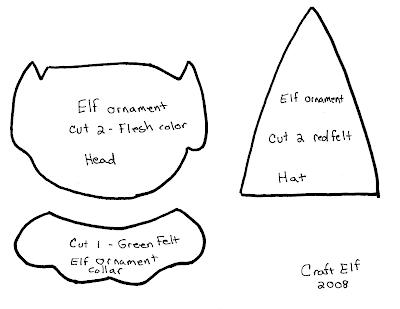 Elf ornament
Cut 2 - Flesh color
Head
Elf ornament
Cut 2 red felt
Hat
Cut 1 - Green Felt
Elf Ornament
collar
Craft Elf
2008